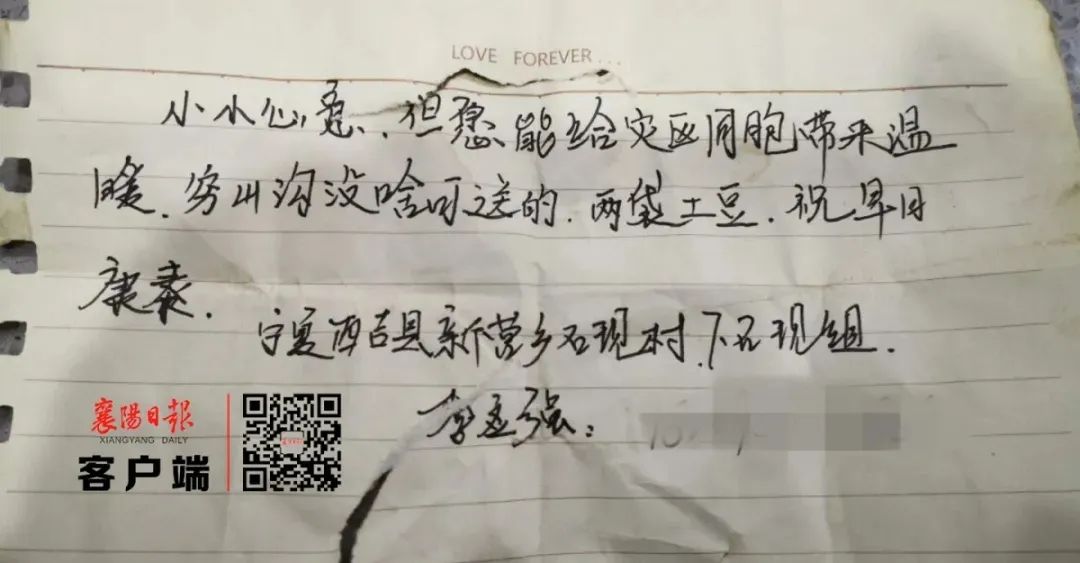 LOVE FOREVER...
小小心意,但愿能给灾区同胞带来温
暖.穷山沟没啥可送的.两袋土豆.祝早日
康泰.
宁夏西吉县新营乡石岘村.下石岘组.
李孟强:
襄陽日報
XIANGYANG DAILY
客户端